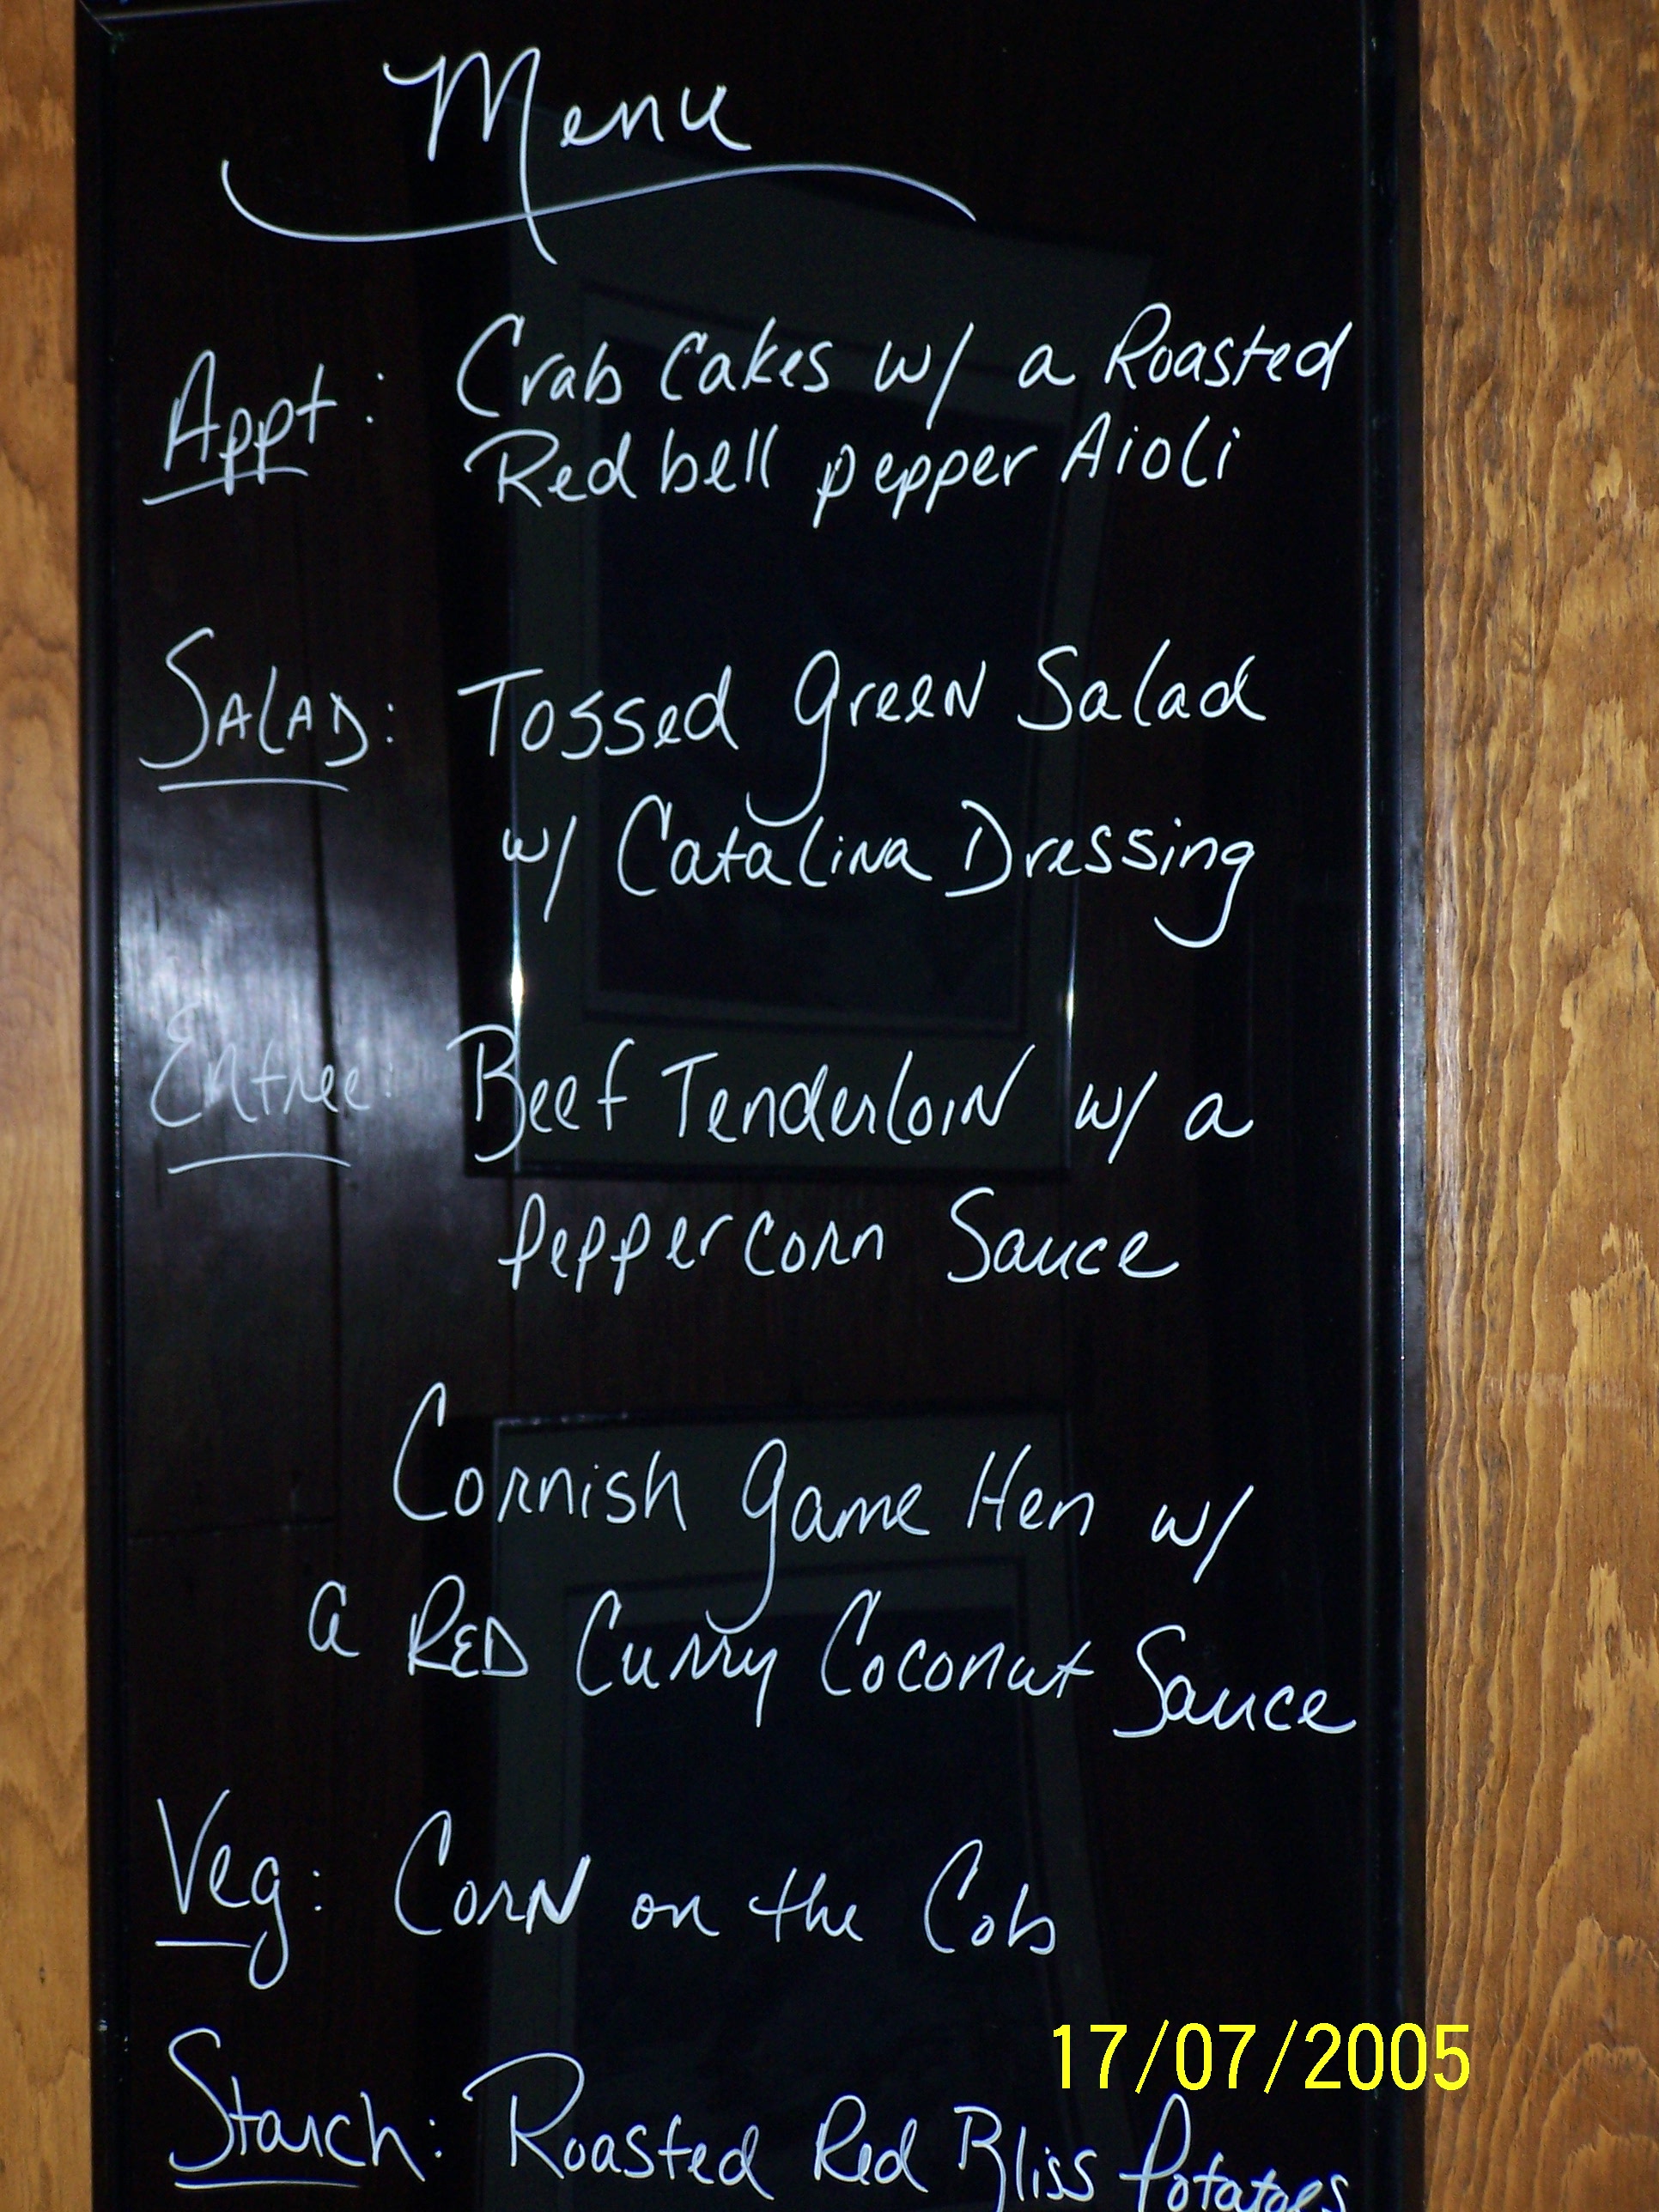 Menu
Appt: Crab Cakes w/ a Roasted
Red bell pepper Aioli
SALAD: Tossed green Salad
w/ Catalina Dressing
Entree: Beef Tenderloin w/ a
Peppercorn Sauce
Cornish game Hen w/
a RED Curry Coconut Sauce
Veg: Corn on the Cob
17/07/2005
Starch: Roasted Red Bliss Potatoes